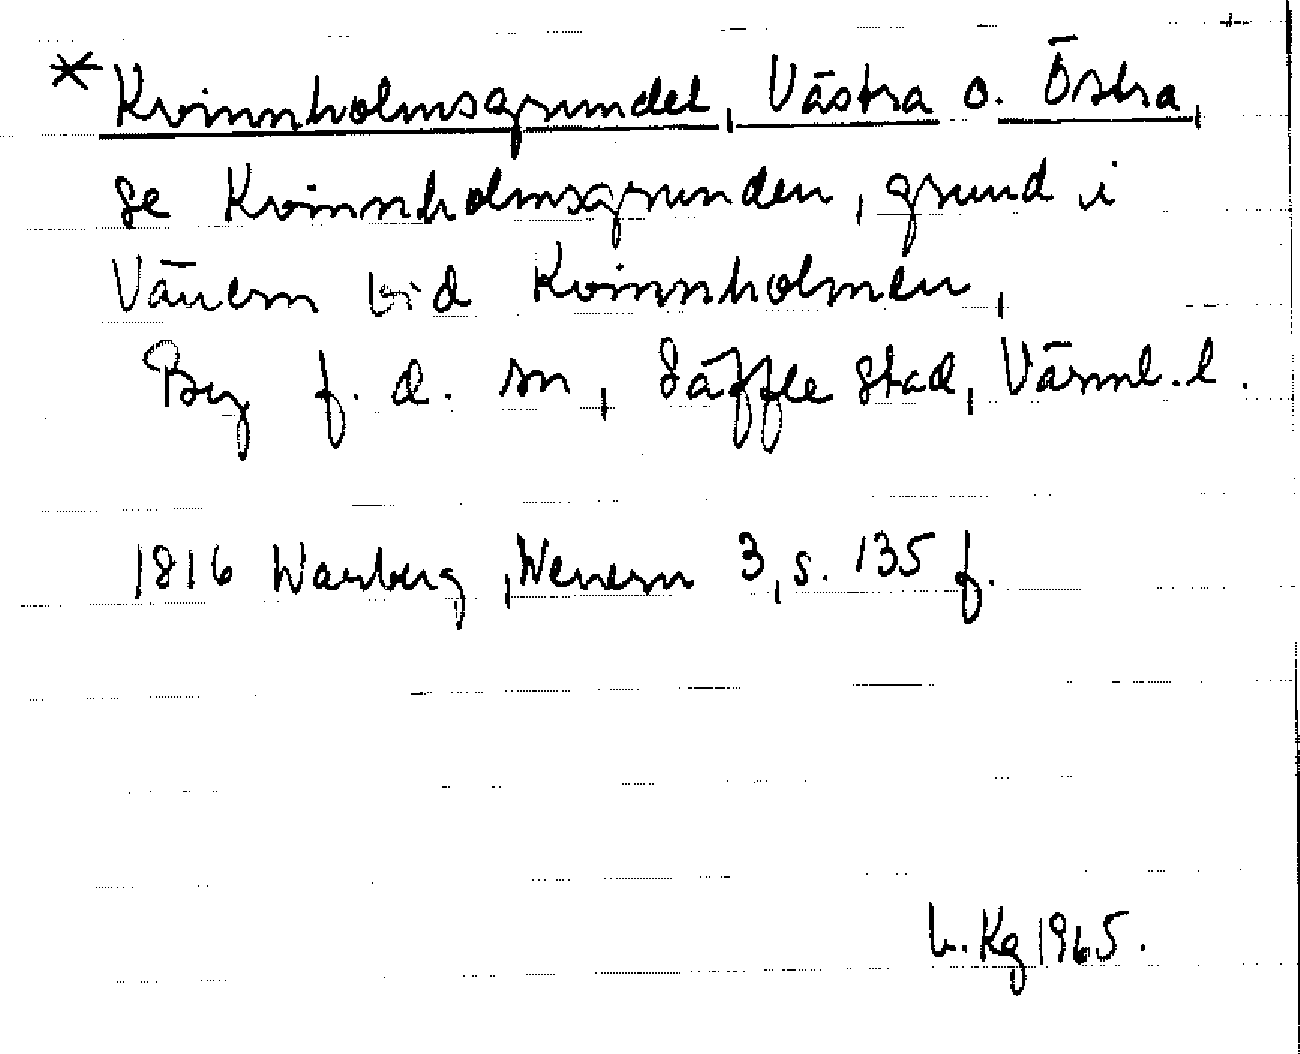 * Kvinnholmsgrundet, Västra o. Östra,
se Kvinnholmsgrunden, grund i
Vänern vid Kvinnholmen,
By f. d. sn, Säffle stad, Värml. l.
1816 Warberg, Wenern 3, s. 135 f.
L. Kg 1965.